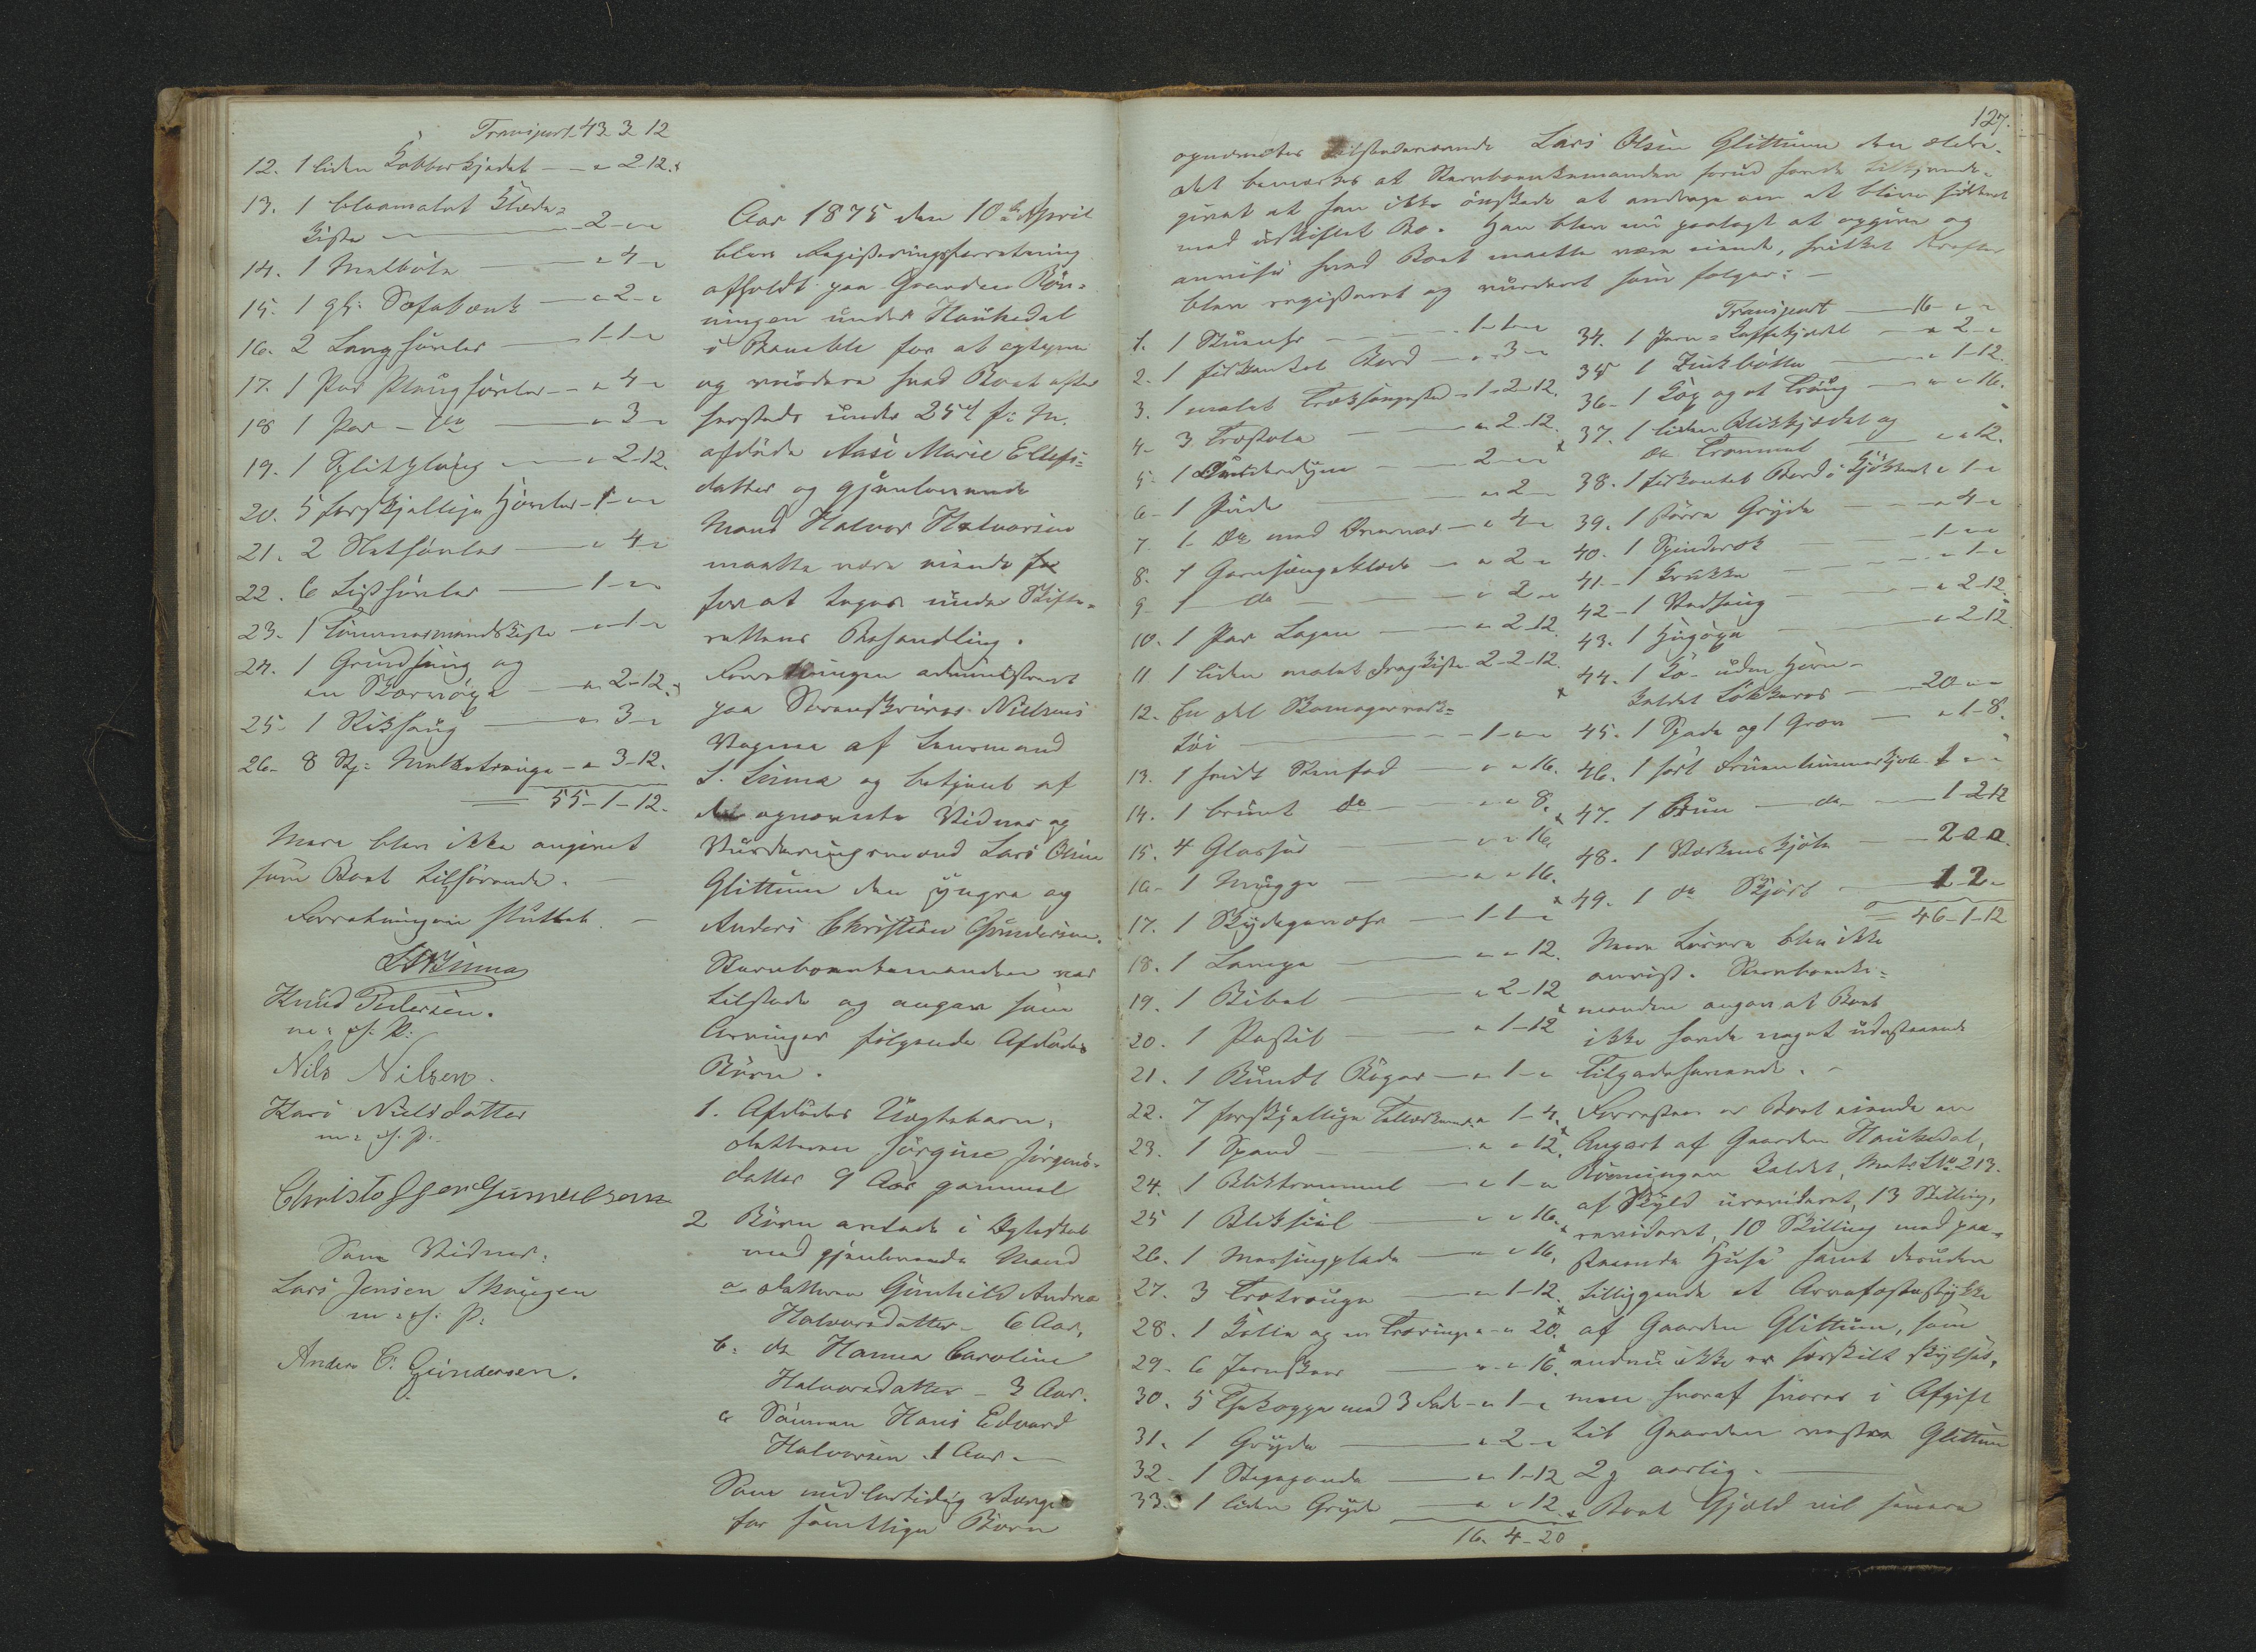 Transport 43 3 12
12. 1 liden Kobberkjedel — " 2-12.
13. 1 blaamalet Klæde-
kiste — 2 - " "
14. 1 Malbøtte — " 4 "
15. 1 gl: Sofabænk — " 2 - "
16. 2 Langhøvler — 1-1- "
17. 1 Par Plaughøvler — " 4 "
18 1 Par — do — " 3 "
19. 1 — " 2-12.
20. 5 forskjellige Høvler — 1 - " "
21. 2 Slethøvler — " 4 "
22. 6 Listhøvler — 1 - " "
23. 1 Tømmermandskiste — " 1 "
24. 1 Grindsaug og
en Skarvøxe — " 2-12.
25. 1 Stiksaug — " 3 "
26. 8 St: Melketrauge — " 3-12.
= 55-1-12.
Mere blev ikke angivet
som Boet tilhørende. —
Forretningen sluttet. —
Knud Pedersen.
m: f: P:
Nils Nilsen.
Kari Nielsdatter
m: f: P:
Christoffer Gunulsen
Som Vidner:
Lars Jensen Skougen
m: f: P:
Anders C. Gundersen.
Aar 1875 den 10de April
blev Registreringsforretning
afholdt paa Gaarden Røn-
ningen under Haukedal
i Bamble for at optegne
og vurdere hvad Boet efter
sammesteds under 25de f: M.
afdøde Aase Marie Ellefs-
datter og gjenlevende
Mand Halvor Halvorsen
maatte være eiende
for at tages under Skifte-
rettens Behandling.
Forretningen administreret
paa Sorenskriver Nielsens
Vegne af Lensmand
S. Linna og betjent af
de opnævnte Vidner og
Vurderingsmænd Lars Olsen
Glittum den yngre og
Anders Christian Gundersen.
Stervboenkemanden var
tilstede og angav som
Arvinger følgende Afdødes
Børn.
1. Afdødes Uægtebarn,
datteren Jørgine Jørgens-
datter 9 Aar gammel
2 Børn avlede i Ægteskab
med gjenlevende Mand
a datteren Gunhild Andrea
Halvorsdatter — 6 Aar,
b: do Hanna Caroline
Halvorsdatter — 3 Aar.
c Sønnen Hans Edvard
Halvorsen 1 Aar. —
Som midlertidig Værge
for samtlige Børn
127.
opnævntes tilstedeværende Lars Olsen Glittum den ældre.
Det bemærkes at Stervboenkemanden forud havde tilkjende-
givet at han ikke ønskede at andrage om at blive siddende
med uskiftet Bo. Han blev nu paalagt at opgive og
anvise hvad Boet maatte være eiende, hvilket derefter
blev registreret og vurderet som følger: —
1. 1 Stueuhr — 1-1- "
2. 1 firkantet Bord — " 3 "
3. 1 malet Træksengested — 1-2-12.
4. 3 Træstole — " 2-12.
5. 1 Underdyne — 2 - " "
6. 1 Pude — " 2 "
7. 1 do med Dunvaar — " 4 "
8. 1 Garnsengeklæde — " 2 "
9. 1 do — " 2 "
10. 1 Par Lagen — " 2-12
11 1 liden malet Dragkiste 2-2-12.
12. En del Skomagerværk-
tøi — 1 - " "
13. 1 hvidt Stenfad — " " 16.
14. 1 brunt do — " " 8.
15. 4 Glasfad — " " 16.
16. 1 Mugge — " " 16.
17. 1 Skydegevæhr — 1-1- "
18. 1 Lampe — " " 12.
19. 1 Bibel — " 2-12
20. 1 Postil — " 1-12
21. 1 Bundt Bøger — " 1 "
22. 7 forskjellige Tallerkener " 1-4.
23. 1 Spand — " " 12.
24. 1 Bliktrommel — " 1 "
25 1 Bliksiil — " " 16.
26. 1 Messingplade — " " 16.
27. 3 Trætrauge — " 1-12
28. 1 Kolle og en Træringe " " 20.
29. 6 Jernskeer — " " 16
30. 5 Thekopper med 3 Fade — " 1 "
31. 1 Gryde — " 2 "
32. 1 Stegepande — " 1-12
33. 1 liden Gryde — " " 12
16. 4-20
Transport — 16 - " "
34. 1 Jern-Kaffekjedel — " 2 "
35 1 Zinkbøtte — " 1-12.
36. 1 Kop og et Traug — " " 16.
37. 1 liden Blikkjedel og
do Trommel — " " 12.
38. 1 firkantet Bord i Kjøkkenet " 1 "
39. 1 større Gryde — " 4 "
40. 1 Spinderok — 1 - " "
41. 1 Krukke — " 1 "
42. 1 Vedsaug — " 2-12.
43. 1 Hugøxe — " 2-12
44. 1 Ko uden Horn
kaldet — 20 - " "
45. 1 Spade og 1 Grev — " 1-8.
46. 1 sort Fruentimmerkjole 1 " "
47. 1 Brun — do — 1-2-12
48. 1 Værkens kjole — 2 " "
49. 1 do Skjørt — 1 2 "
= 46-1-12
Mere Løsøre blev ikke
anvist. Stervboenke-
manden angav at Boet
ikke havde noget udestaaende
Tilgodehavende. —
Forresten er Boet eiende en
Anpart af Gaarden Haukedal,
Rønningen kaldet, Matr: No 213.
af Skyld urevideret, 13 Skilling,
revideret, 10 Skilling med paa-
staaende Huse samt desuden
tilliggende et Arvefæstestykke
af Gaarden Glittum, som
endnu ikke er særskilt skyldsat,
men hvoraf svares i Afgift
til Gaarden vestre Glittum
2 aarlig. —
Boets Gjæld vil senere